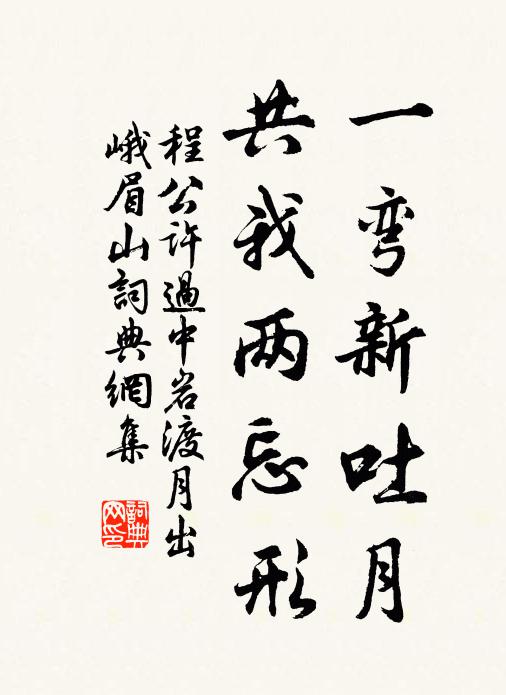 一彎新吐月
共我两忘形
程公许過中岩渡月出
峨眉山詞典網集
詞典
网印